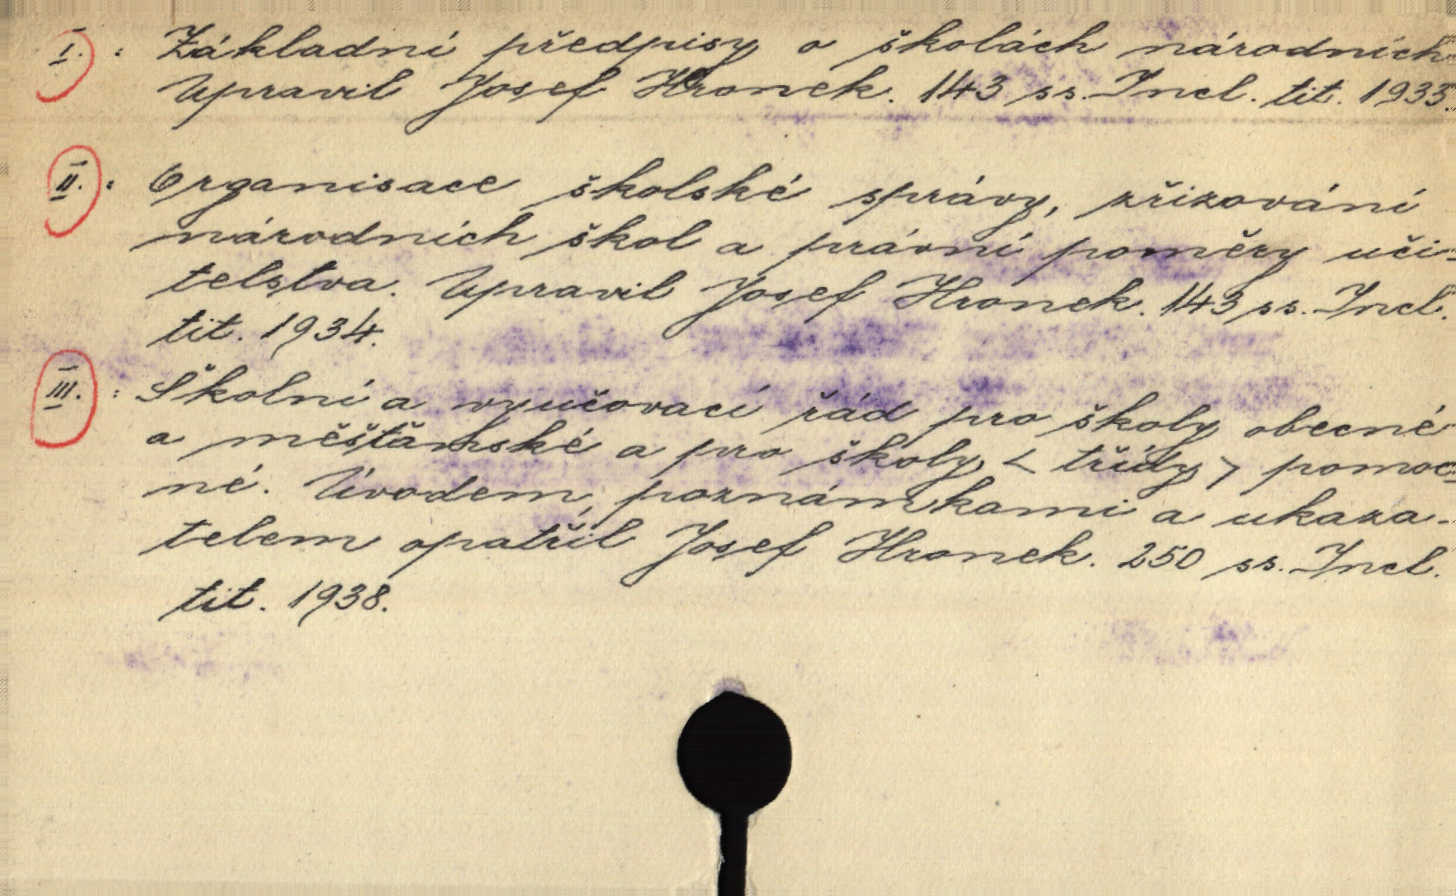 I. : Základní předpisy o školách národních.
Upravil Josef Hronek. 143 ss. Incl. tit. 1933.
II. : Organisace školské správy, zřizování
národních škol a právní poměry uči-
telstva. Upravil Josef Hronek. 143 ss. Incl.
tit. 1934.
III. : Školní a vyučovací řád pro školy obecné
a měšťanské a pro školy < třídy > pomoc-
né. Úvodem, poznámkami a ukaza-
telem opatřil Josef Hronek. 250 ss. Incl.
tit. 1938.